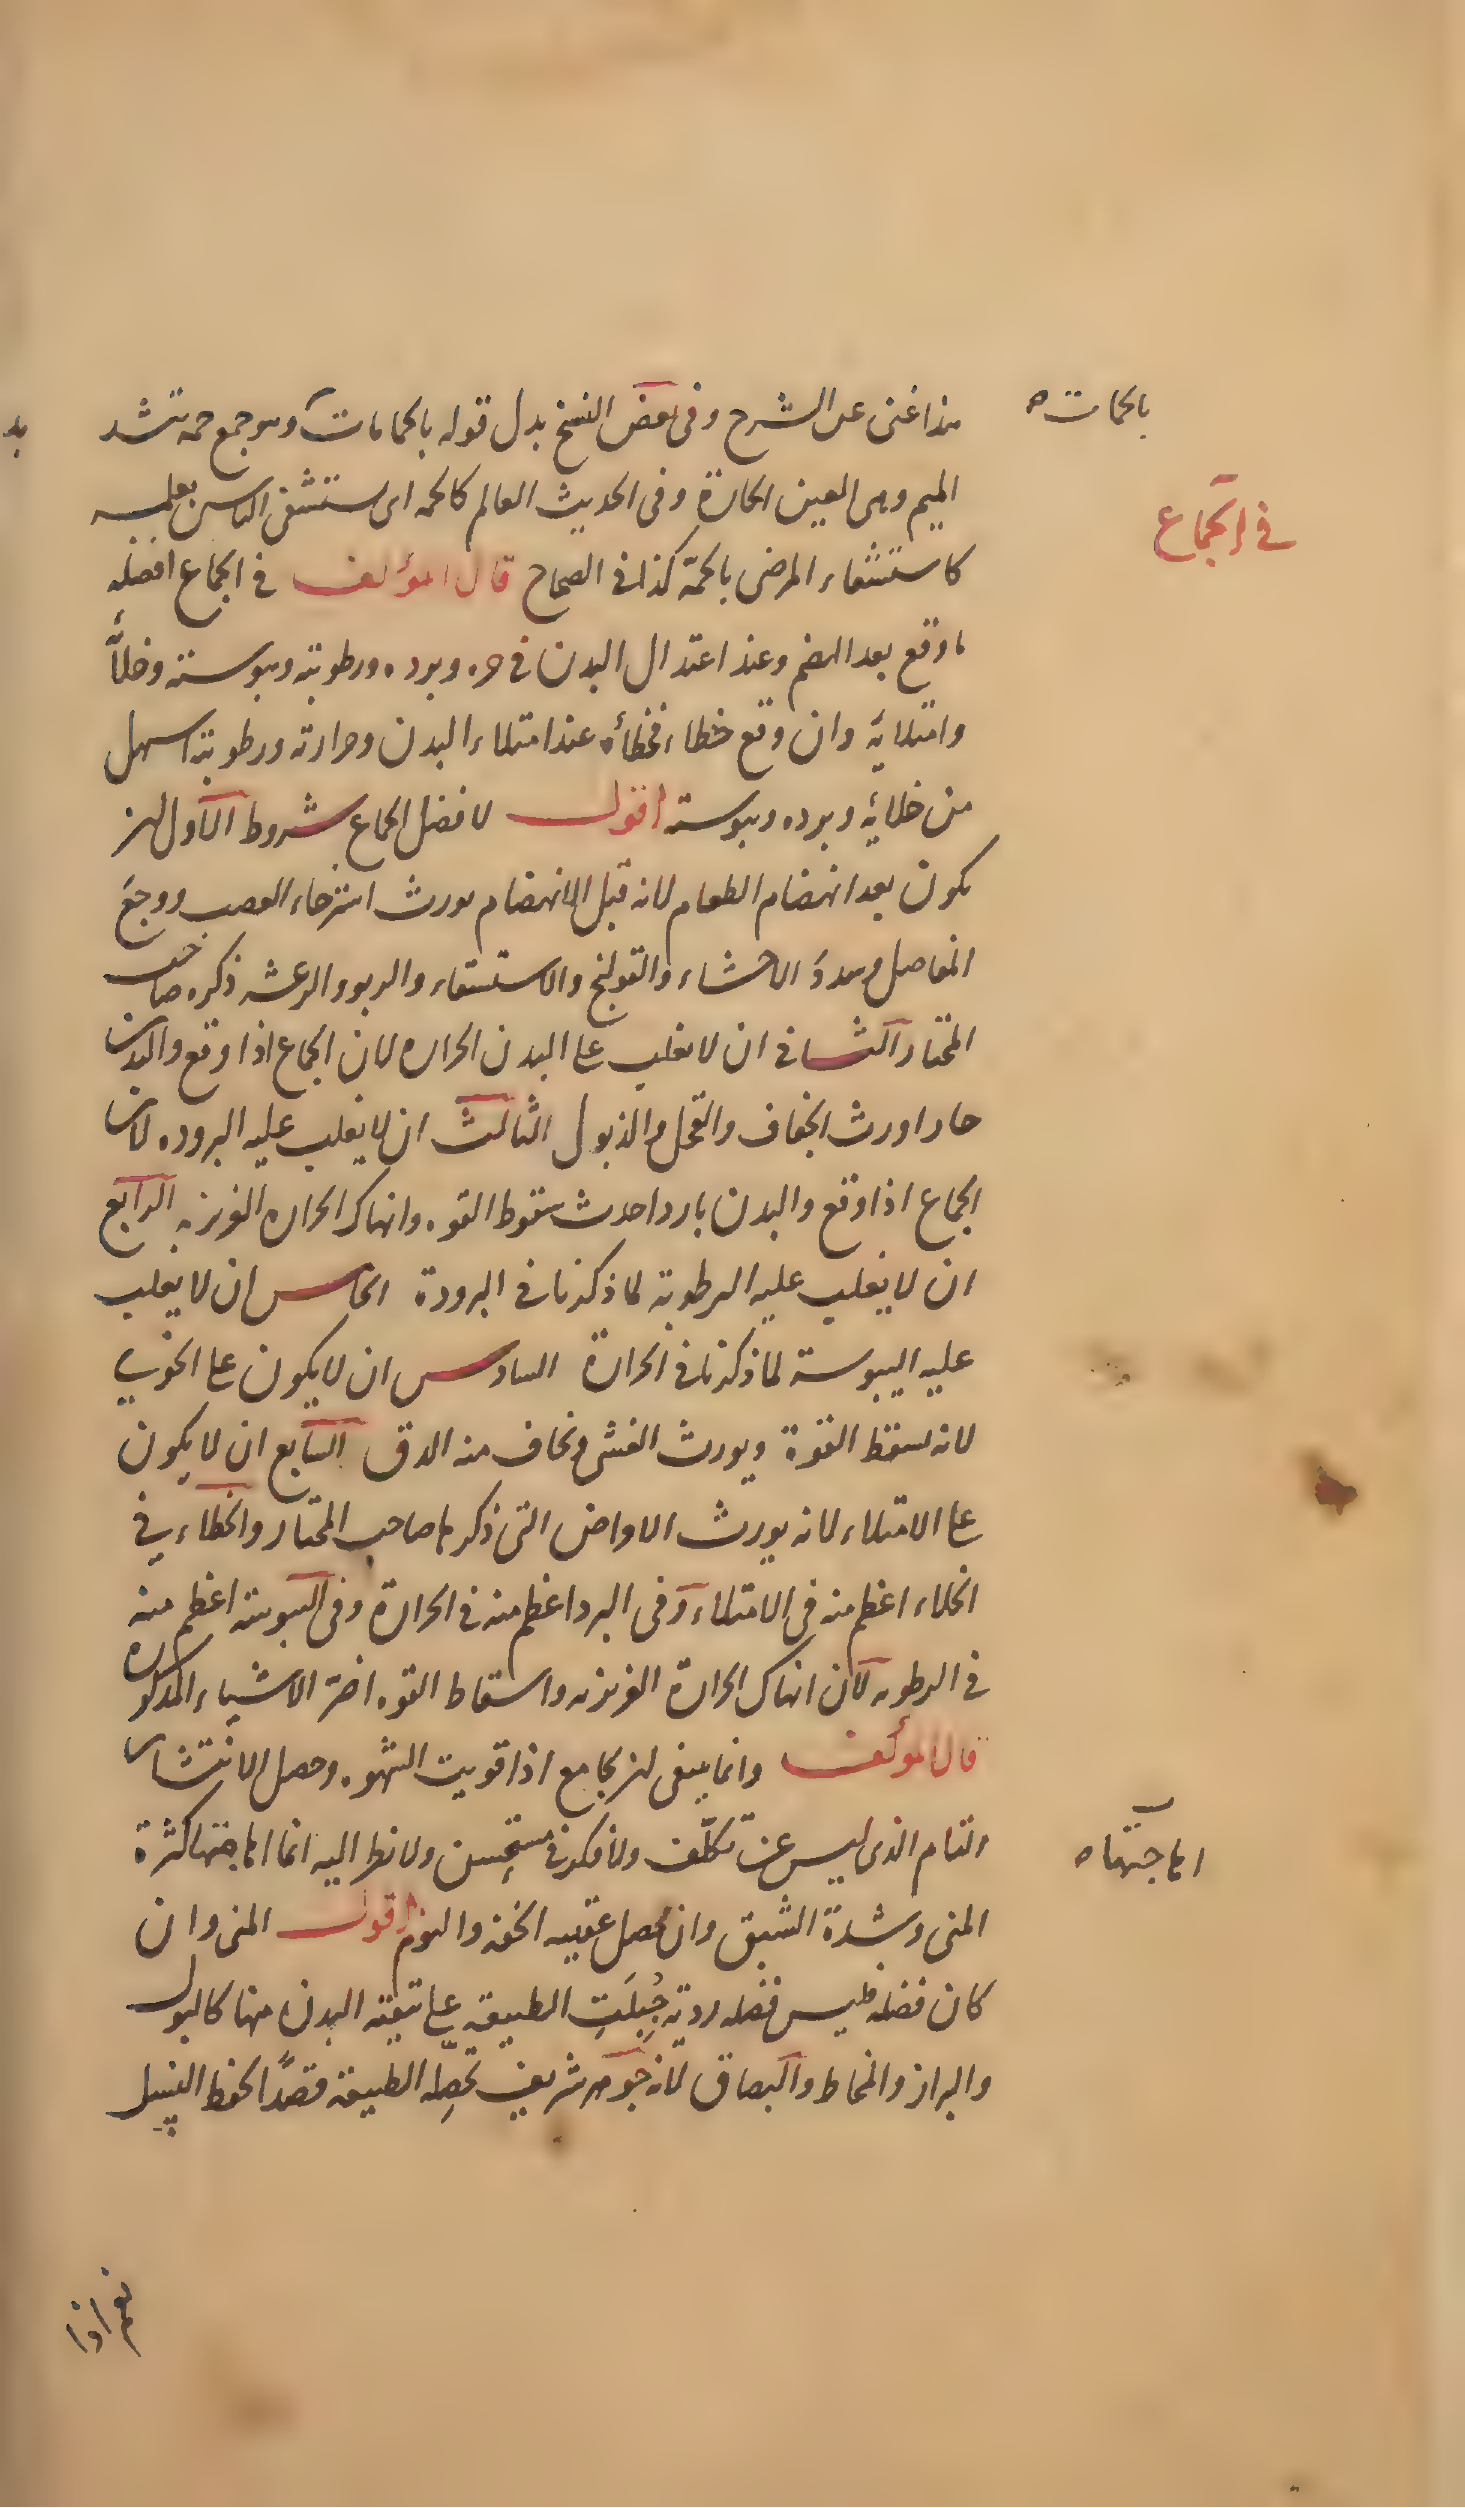 بالحمات ه
هذا غنى عن الشرح وفى بعض النسخ بدل قوله بالحمامات وهو جمع حمه بتشد
الميم وهى العين الحارة وفى الحديث العالم كالحمه اى يستشفى الناس بعلمه
فى الجماع
كاستشفاء المرضى بالحمة كذا فى الصحاح قال المؤلف فى الجماع افضله
ما وقع بعد الهضم وعند اعتدال البدن فى حره وبرده ورطوبته ويبوسته وخلائه
وامتلائه وان وقع خطاء فخطأه عند امتلاء البدن وحرارته ورطوبته اسهل
من خلائه وبرده ويبوسته اقول لافضل الجماع شروط الاول ان
يكون بعد انهضام الطعام لانه قبل الانهضام يورث استرخاء العصب ووجع
المفاصل وسدد الاحشاء والقولنج والاستسقاء والربو والرعشه ذكره صاحب
المختار الثانى ان لا يغلب على البدن الحراره لان الجماع اذا وقع والبدن
حارا اورث الجفاف والقحل والذبول الثالث ان لا يغلب عليه البروده لان
الجماع اذا وقع والبدن بارد احدث سقوط القوه وانهاك الحراره الغريزيه الرابع
ان لا يغلب عليه الرطوبة لما ذكرنا فى البرودة الخامس ان لا يغلب
عليه اليبوسة لما ذكرنا فى الحرارة السادس ان لا يكون على الخوى
لانه يسقط القوة ويورث الغشى ويخاف منه الدق السابع ان لا يكون
على الامتلاء لانه يورث الامراض التى ذكرها صاحب المختار والخطاء فى
الخلاء اعظم منه فى الامتلاء وفى البرد اعظم منه فى الحرارة وفى اليبوسة اعظم منه
فى الرطوبه لان انهاك الحرارة الغريزيه واسقاط القوه اضر الاشياء المذكوره
قال المؤلف وانما ينبغى ان يجامع اذا قويت الشهوه وحصل الانتشار
التام الذى ليس عن تكلف ولا فكر فى مستحسن ولا نظر اليه انما اهاجتها كثرة
اهاجتها ه
المنى وشدة الشبق وان يحصل عقيبه الخفه والنوم اقول المنى وان
كان فضله فليس فضله ردية جبلت الطبيعة على تنقية البدن منها كالبول
والبراز والمخاط والبصاق لانه جوهر شريف تحصله الطبيعة قصدا لحفظ النسل
نعم اذا